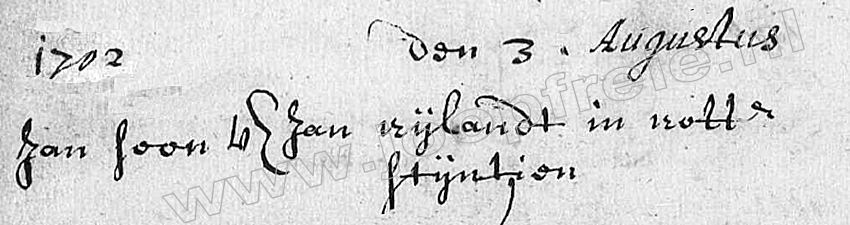 1702 den 3. Augustus
Jan soon v Jan rijlandt in rott
stijntien
www.joopfreie.nl